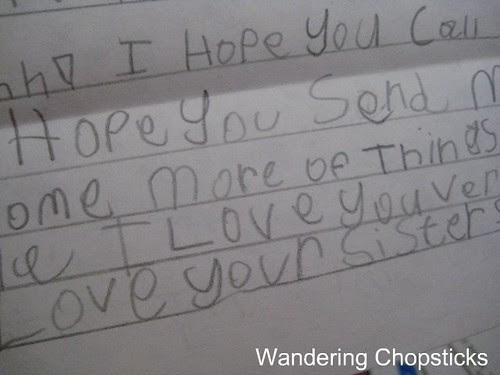 I Hope you Call
Hope you Send
ome more of Things
I Love you ver
Love your sisters
Wandering Chopsticks